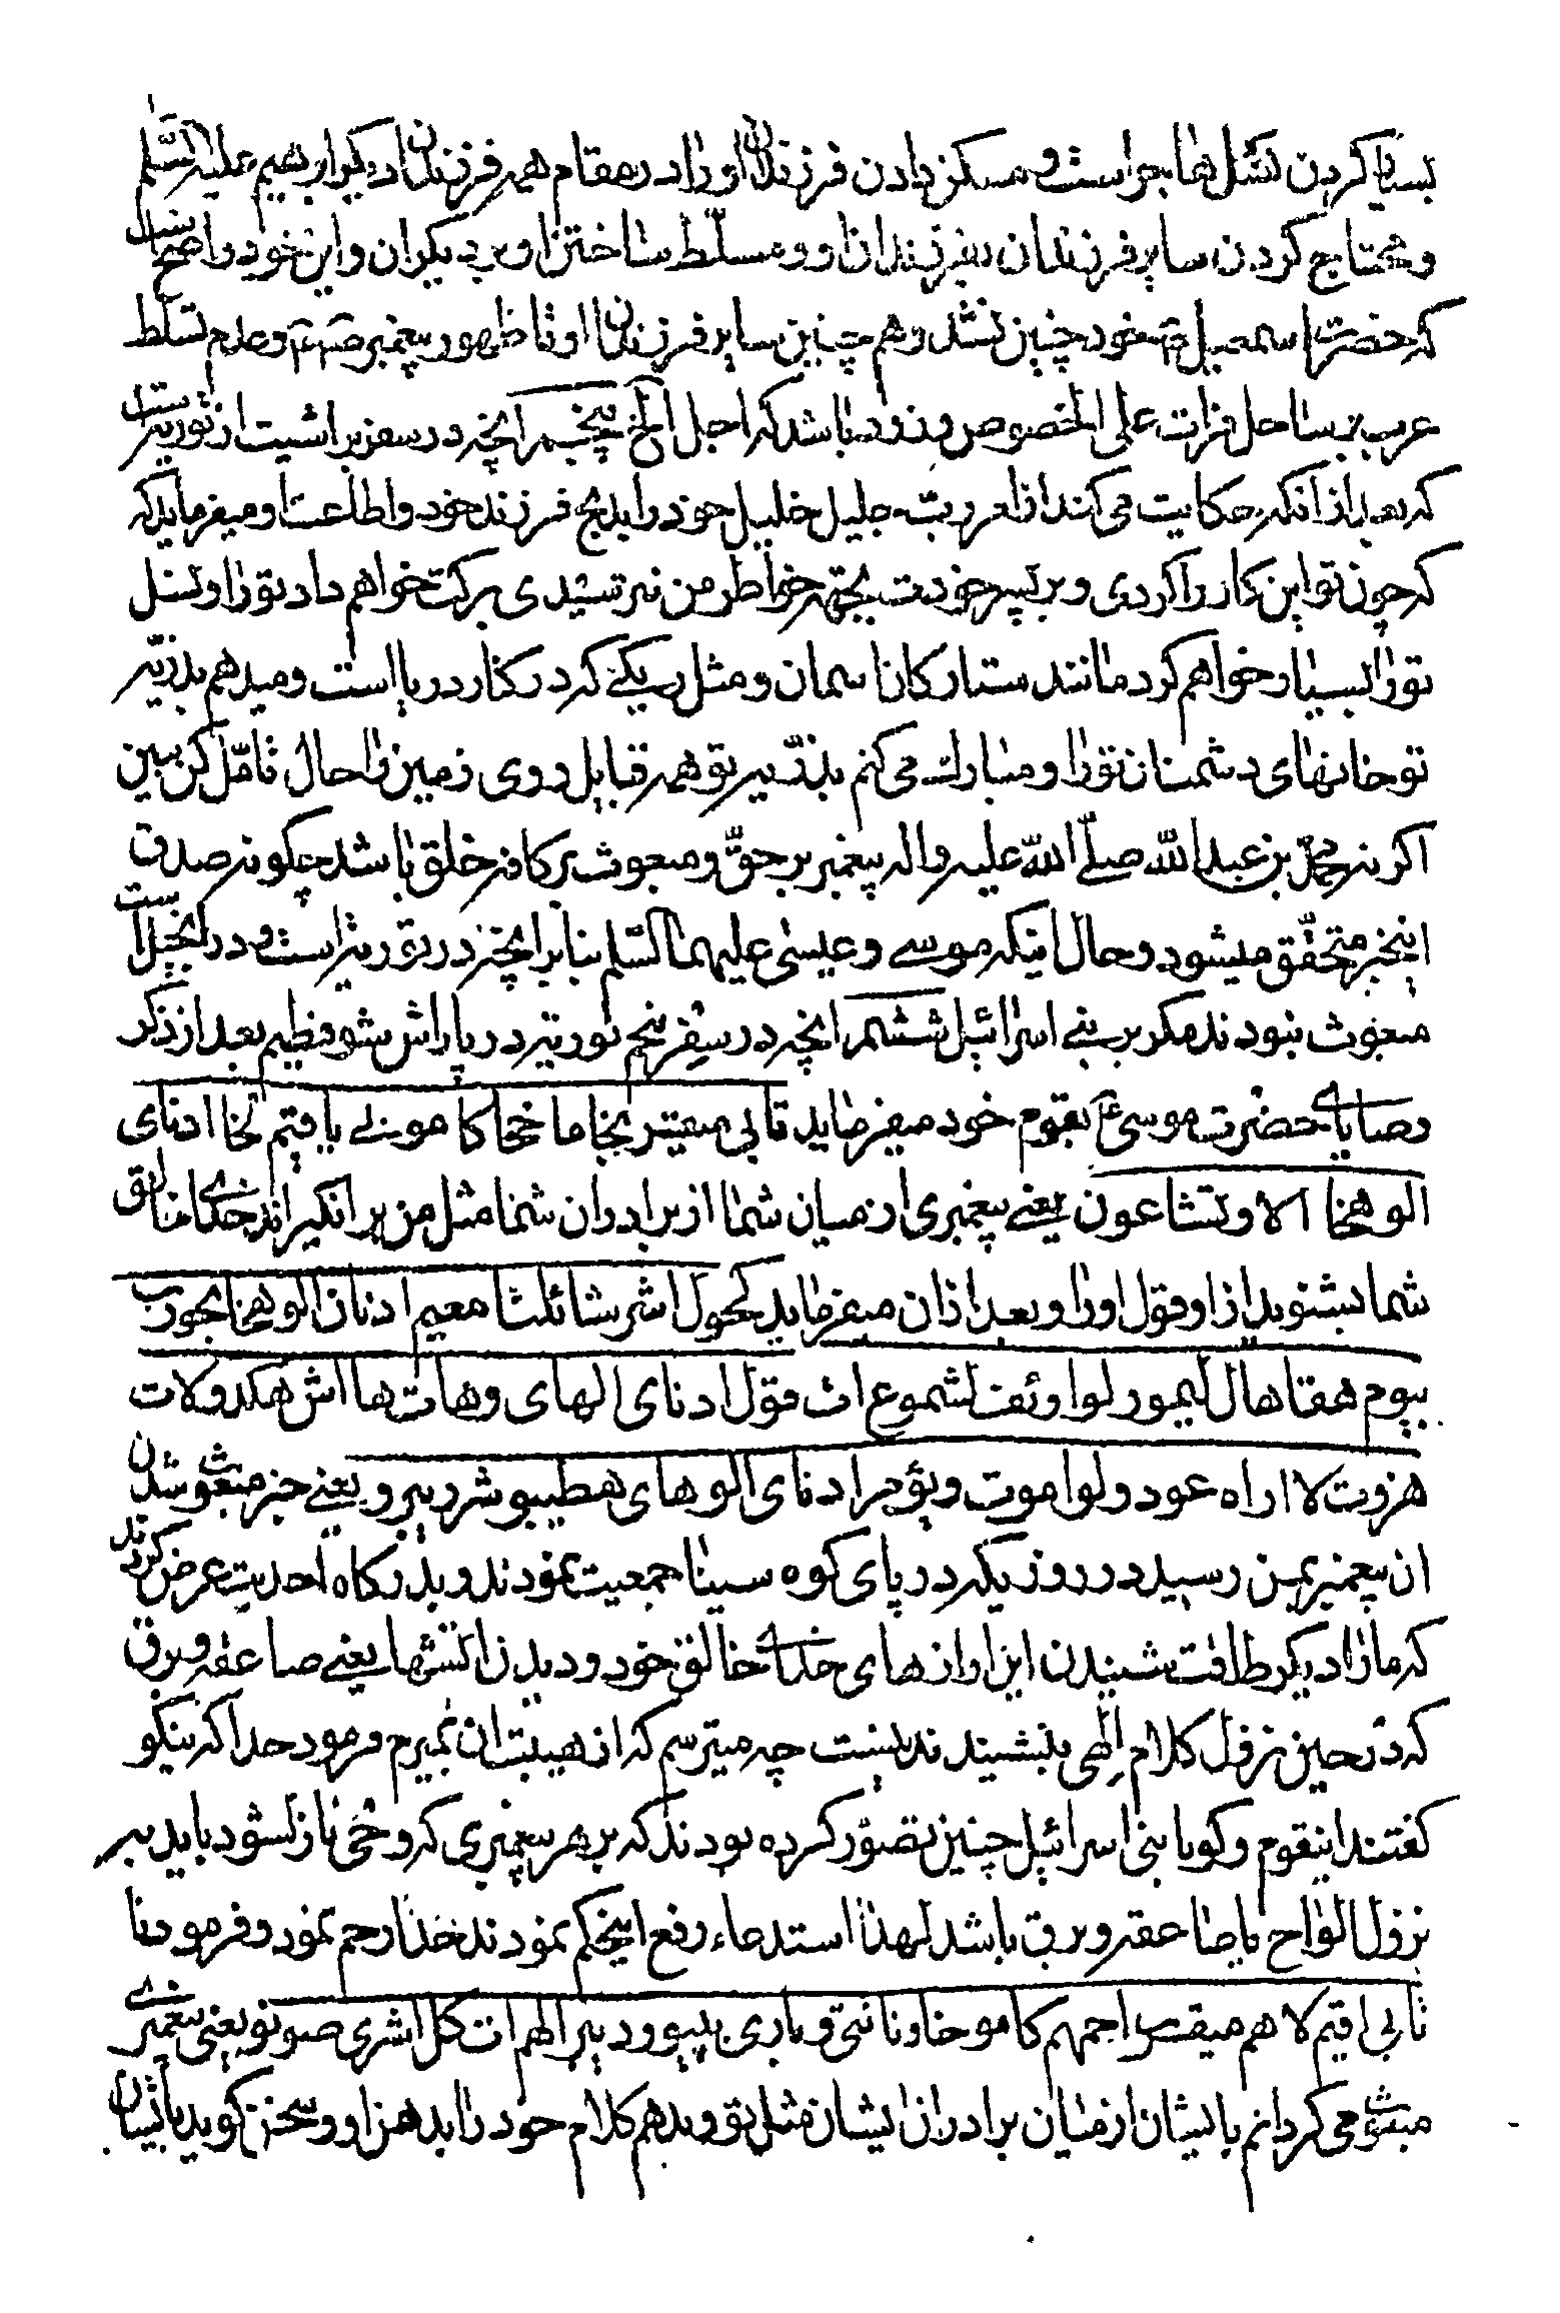 بسیار کردن نسل هاجر است و مسکن دادن فرزندان او را در مقام همه فرزندان دیکر ابرهیم علیه السّلم
و محتاج کردن سایر فرزندان بفرزندان او و مسلّط ساختن او بر دیکران و این خود واضح است
که حضرت اسمعیل خود چنین نشد و هم چنین سایر فرزندان او تا ظهور پیغمبر و عدم تسلط
عرب بر ساحل فرات علی الخصوص باشد که اجل الخ پنجم انچه در سفر براشیت از توریة است
که بعد از انکه حکایت می کند از امر ربّ جلیل خلیل خود را بذبح فرزند خود و اطاعت او میفرماید که
که چون تو این کار را کردی و بر پسر خودت بجهة خاطر من نترسیدی برکت خواهم داد تو را و نسل
تو را بسیار خواهم کرد مانند ستارکان اسمان و مثل ریکی که در کنار دریا است و میدهم بذریّه
تو خانهای دشمنان تو را و مبارک می کنم بذریّه تو همه قبایل روی زمین را حال تامّل کن ببین
اکر نه محمّد بن عبد الله صلّی الله علیه و اله پیغمبر بر حقّ و مبعوث بر کافه خلق باشد چکونه صدق
اینخبر متحقّق میشود و حال اینکه موسی و عیسی علیهما السّلم بنا بر انچه در توریة است و در انجیل است
مبعوث نبودند مکر بر بنی اسرائیل ششم انچه در سفر پنجم توریة در پاراش شوفطیم بعد از ذکر
وصایای حضرت موسی ع بقوم خود میفرماید نابی میقیربخا ماخخا کامونی یاقیم لخا ادنای
الوهخا الاو تشاعون یعنی پیغمبری از میان شما از برادران شما مثل من بر انکیزاند خدای خالق
شما بشنوید از او قول او را و بعد از ان میفرماید کخول اشر شائلتا معیم ادنای الوهخا بحورب
بیوم هقاهال لیمور لو اوئف لشموع ات قول ادنای الهای و هات ها اش هکدولات
هزوت لا اراه عود و لو اموت ویؤمر ادنای الوهای هطیبو اشر دیبرو یعنی خبر مبعوث شدن
ان پیغمبر بمن رسید در روزیکه در پای کوه سینا جمعیت نمودند و بدرکاه احدیت عرض کردند
که ما را دیکر طاقت شنیدن این اوازهای خدای خالق خود و دیدن اتشها یعنی صاعقه و برق
که در حین نزول کلام الهی میشنیدند نیست چه میترسم که از هیبت ان بمیرم فرمود خدا که نیکو
کفتند اینقوم و کویا بنی اسرائیل چنین تصوّر کرده بودند که بر هر پیغمبری که وحی نازلشود باید به
نزول الواح با صاعقه و برق باشد لهذا استدعاء رفع اینحکم نمودند خدا رحم نمود و فرمودنا
نابی اقیم لاهم میقرب احیهم کاموخا وناتتی دباری بپیو ودیبر الهم ات کل اشری صونو یعنی پیغمبری
مبعوث می کردانم بایشان از میان برادران ایشان مثل تو و بدهم کلام خود را بدهن او و سخن کوید بایشان